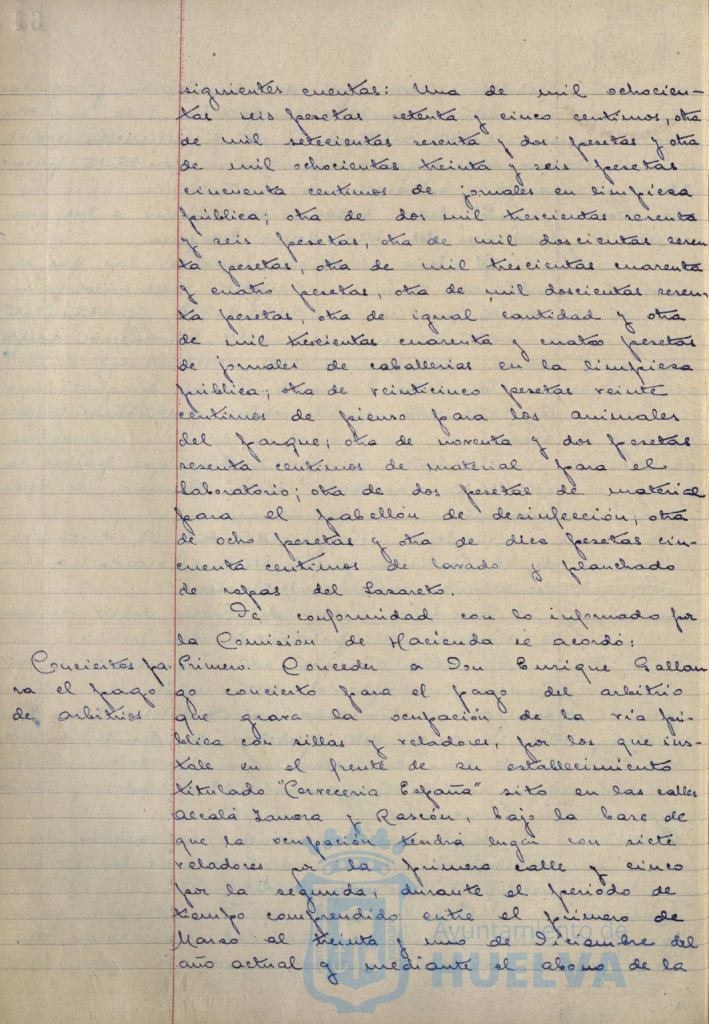 siguientes cuentas: Una de mil ochocien-
tas seis pesetas setenta y cinco centimos, otra
de mil setecientas sesenta y dos pesetas y otra
de mil ochocientas treinta y seis pesetas
cincuenta centimos de jornales en limpieza
pública; otra de dos mil trescientas sesenta
y seis pesetas, otra de mil doscientas sesen-
ta pesetas, otra de mil trescientas cuarenta
y cuatro pesetas, otra de mil doscientas sesen-
ta pesetas, otra de igual cantidad y otra
de mil trescientas cuarenta y cuatro pesetas
de jornales de caballerias en la limpieza
pública; otra de veinticinco pesetas veinte
centimos de pienso para los animales
del parque; otra de noventa y dos pesetas
sesenta centimos de material para el
laboratorio; otra de dos pesetas de material
para el pabellón de desinfección; otra
de ocho pesetas y otra de diez pesetas cin-
cuenta centimos de lavado y planchado
de ropas del Lazareto.
De conformidad con lo informado por
la Comisión de Hacienda se acordó:
Conciertos pa-
ra el pago
de arbitrios
Primero. Conceder a Don Enrique Gallan-
go concierto para el pago del arbitrio
que grava la ocupación de la vía pú-
blica con sillas y veladores, por los que ins-
tale en el frente de su establecimiento
titulado "Cerveceria España" sito en las calles
Alcalá Zamora y Rascón, bajo la base de
que la ocupación tendrá lugar con siete
veladores por la primera calle y cinco
por la segunda, durante el periodo de
tiempo comprendido entre el primero de
Marzo al treinta y uno de Diciembre del
año actual y mediante el abono de la
Ayuntamiento de
HUELVA